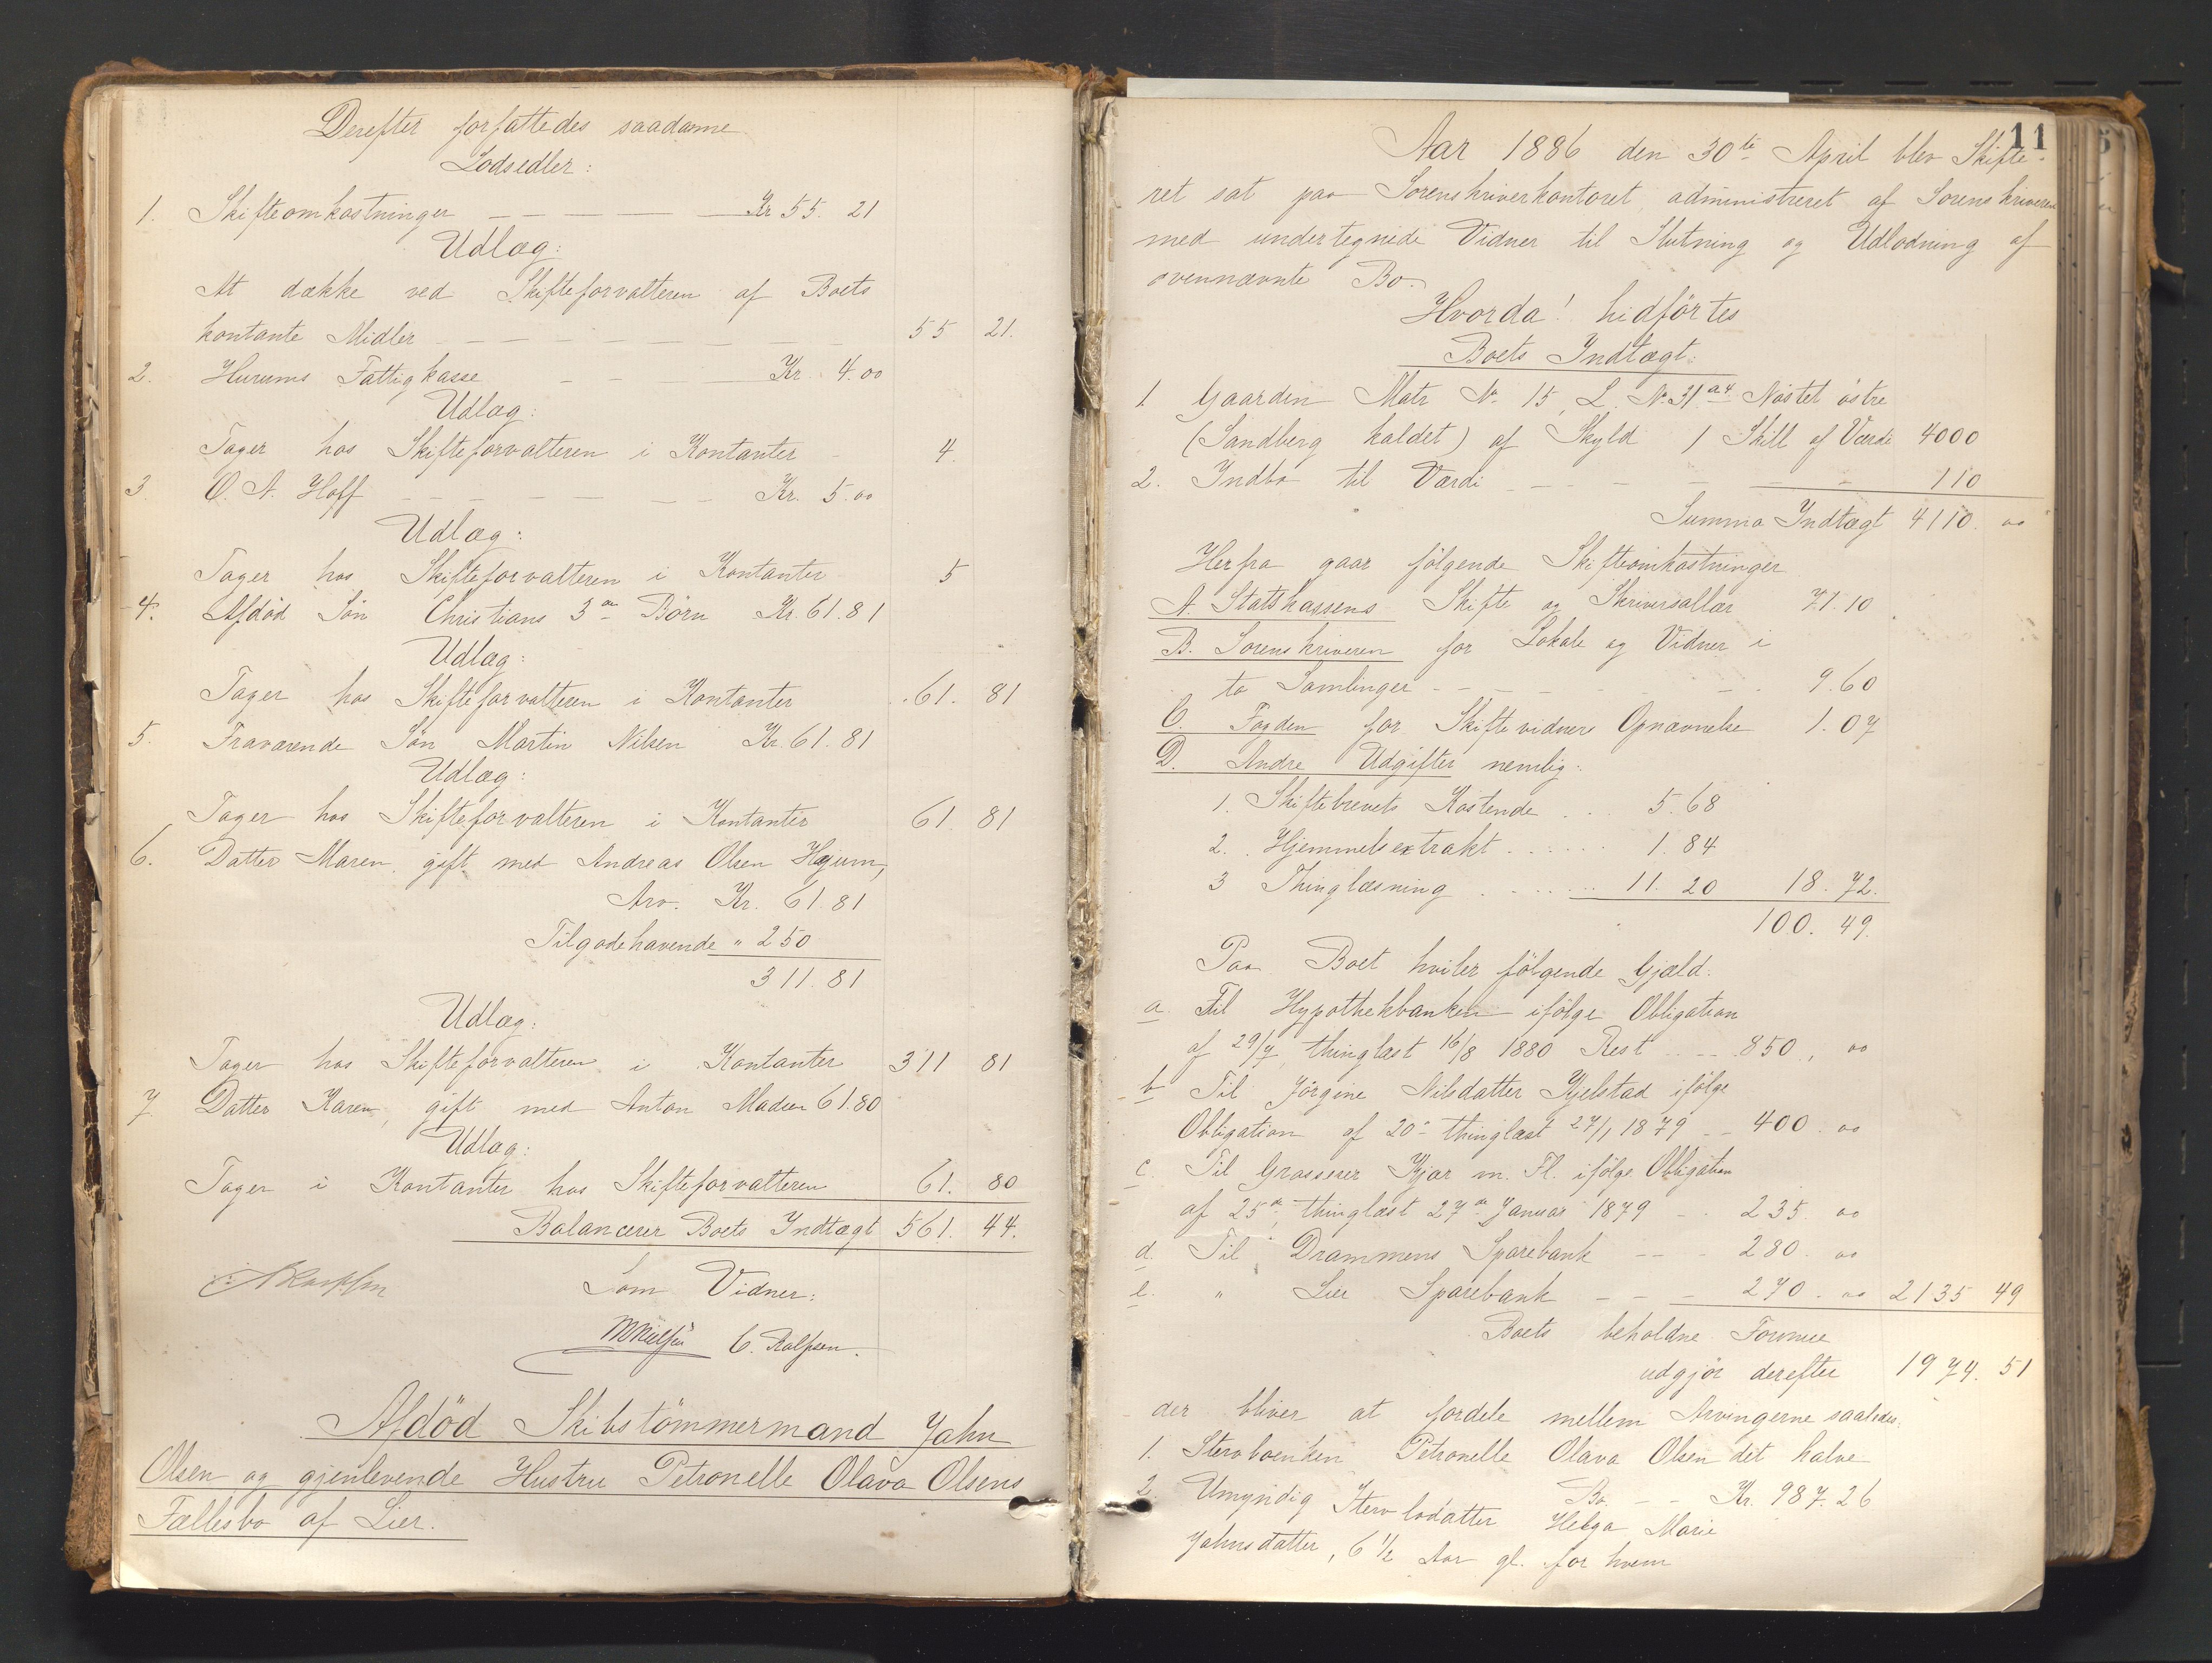 Derefter forfattedes saadanne
Lodsedler:
1. Skifteomkostninger — — — — Kr 55. 21
Udlæg:
At dække ved Skifteforvalteren af Boets
kontante Midler — — — — — — — — 55 21.
2. Hurums Fattigkasse — — — Kr. 4.00
Udlæg:
Tager hos Skifteforvalteren i Kontanter - 4.
3. O. A. Hoff — — — — — — Kr. 5.00
Udlæg:
Tager hos Skifteforvalteren i Kontanter 5
4. Afdød Søn Christians 3de Børn Kr. 61.81
Udlæg:
Tager hos Skifteforvalteren i Kontanter 61. 81
5. Fraværende Søn Martin Nilsen Kr. 61.81
Udlæg:
Tager hos Skifteforvalteren i Kontanter 61. 81
6. Datter Maren, gift med Andreas Olsen
Arv. Kr. 61.81
Tilgodehavende " 250
311.81
Udlæg:
Tager hos Skifteforvalteren i Kontanter 311 81
7. Datter Karen, gift med Anton Madsen 61.80
Udlæg:
Tager i Kontanter hos Skifteforvalteren 61. 80
Balancerer Boets Indtægt 561. 44.
Som Vidner:
C. Rolfsen.
Afdød Skibstömmermand Jahn
Olsen og gjenlevende Hustru Petronelle Olava Olsens
Fællesbo af Lier.
11
Aar 1886 den 30te April blev Skifte-
ret sat paa Sorenskriverkontoret, administreret af Sorenskriveren
med undertegnede Vidner til Slutning og Udlodning af
ovennævnte Bo.
Hvorda! hidförtes
Boets Indtægt:
1. Gaarden Matr. No 15, L. No 31 a4 Nöstet östre
(Sandberg kaldet) af Skyld 1 Skill af Værdi 4000
2. Indbo til Værdi — — — — — 110
Summa Indtægt 4110. 00
Herfra gaar fölgende Skifteomkostninger
A. Statskassens Skifte og Skriversallær 71.10
B. Sorenskriveren for Lokale og Vidner i
to Samlinger — — — — — 9.60
C. Fogden for Skiftevidners Opnævnelse 1.07
D. Andre Udgifter nemlig:
1. Skiftebrevets Kostende . . 5.68
2. Hjemmelsextrakt . . . . . 1.84
3 Thinglæsning . . . . . 11.20 18.72.
100.49.
Paa Boet hviler fölgende Gjæld:
a. Til Hypothekbanken ifölge Obligation
af 29/7, thinglæst 16/8 1880 Rest . . — 850, 00
b. Til Jörgine Nilsdatter Kjelstad ifölge
Obligation af 20de thinglæst 27/1 1879 — 400. 00
c. Til Grosserer Kjær m. Fl. ifölge Obligation
af 25de, thinglæst 27de Januar 1879 — 235. 00
d. Til Drammens Sparebank — — 280. 00
e. " Lier Sparebank — — — 270. 00 2135 49
Boets beholdne Formue
udgjör derefter 1974. 51
der bliver at fordele mellem Arvingerne saaledes:
1. Stervboenken Petronelle Olava Olsen det halve
Bo — — Kr. 987.26
2. Umyndig Stervbodatter Helga Marie
Jahnsdatter, 6 1/2 Aar gl. for hvem